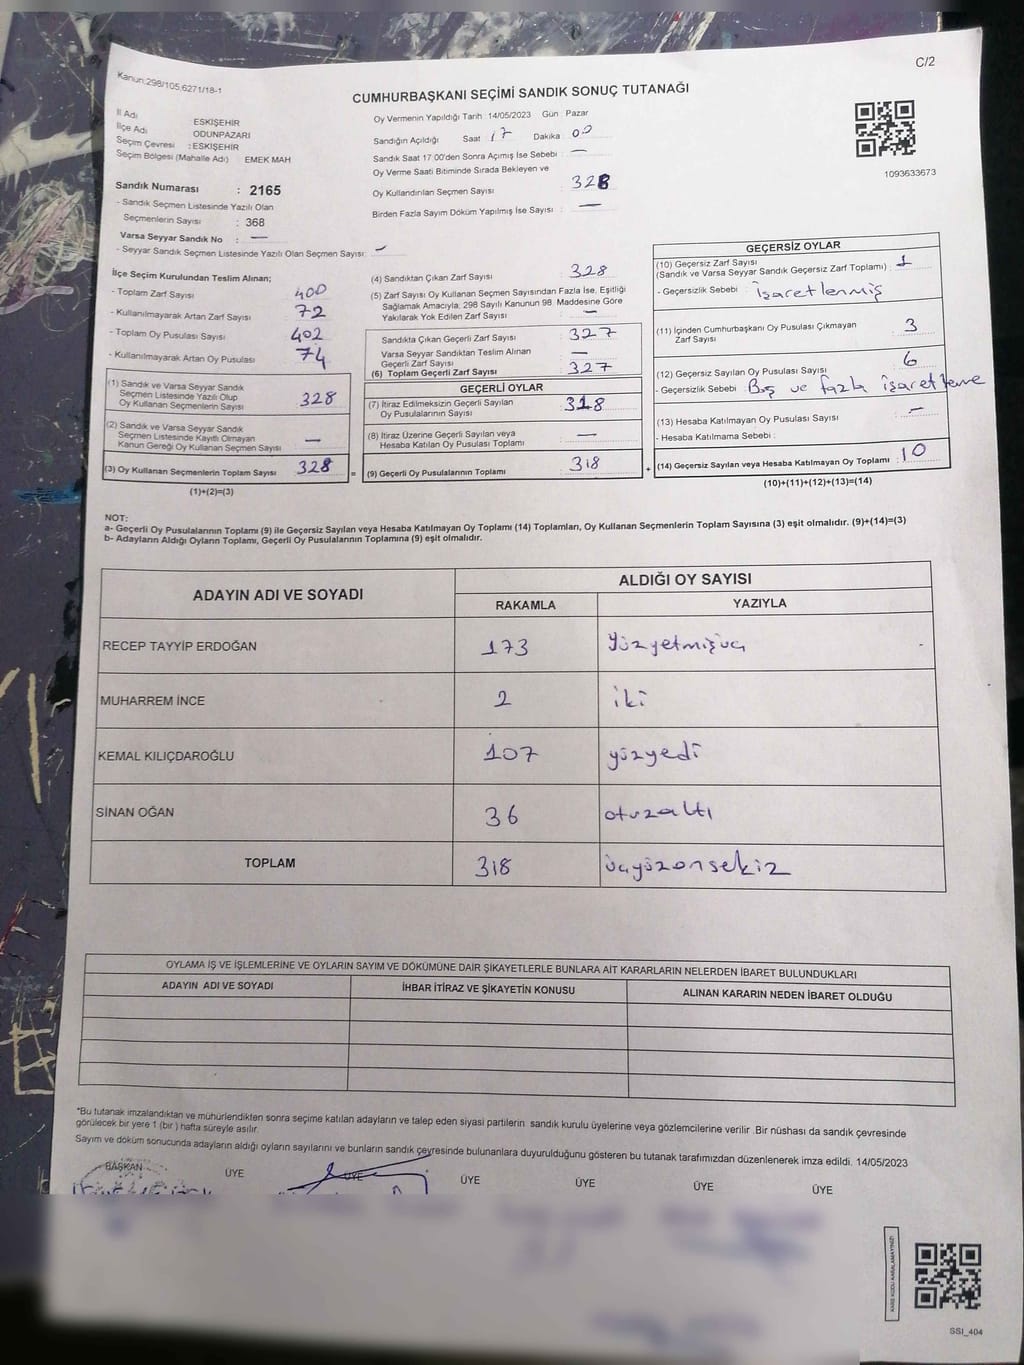 C/2
Kanun:298/105,6271/18-1
CUMHURBAŞKANI SEÇİMİ SANDIK SONUÇ TUTANAĞI
İl Adı ESKİŞEHİR
İlçe Adı ODUNPAZARI
Seçim Çevresi : ESKİŞEHİR
Seçim Bölgesi (Mahalle Adı) EMEK MAH
Sandık Numarası : 2165
- Sandık Seçmen Listesinde Yazılı Olan
Seçmenlerin Sayısı : 368
Varsa Seyyar Sandık No : —
- Seyyar Sandık Seçmen Listesinde Yazılı Olan Seçmen Sayısı: —
Oy Vermenin Yapıldığı Tarih :14/05/2023 Gün : Pazar
Sandığın Açıldığı Saat : 17 Dakika : 00
Sandık Saat 17.00'den Sonra Açımış İse Sebebi : —
Oy Verme Saati Bitiminde Sırada Bekleyen ve
Oy Kullandırılan Seçmen Sayısı : 328
Birden Fazla Sayım Döküm Yapılmış İse Sayısı : —
1093633673
İlçe Seçim Kurulundan Teslim Alınan;
- Toplam Zarf Sayısı : 400
- Kullanılmayarak Artan Zarf Sayısı : 72
- Toplam Oy Pusulası : 402
- Kullanılmayarak Artan Oy Pusulası : 74
(1) Sandık ve Varsa Seyyar Sandık
Seçmen Listesinde Yazılı Olup
Oy Kullanan Seçmenlerin Sayısı : 328
(2) Sandık ve Varsa Seyyar Sandık
Seçmen Listesinde Kayıtlı Olmayan
Kanun Gereği Oy Kullanan Seçmen Sayısı : —
(3) Oy Kullanan Seçmenlerin Toplam Sayısı : 328
(1)+(2)=(3)
(4) Sandıktan Çıkan Zarf Sayısı : 328
(5) Zarf Sayısı Oy Kullanan Seçmen Sayısından Fazla İse, Eşitliği
Sağlamak Amacıyla; 298 Sayılı Kanunun 98. Maddesine Göre
Yakılarak Yok Edilen Zarf Sayısı : —
Sandıkta Çıkan Geçerli Zarf Sayısı : 327
Varsa Seyyar Sandıktan Teslim Alınan
Geçerli Zarf Sayısı : —
(6) Toplam Geçerli Zarf Sayısı : 327
GEÇERLİ OYLAR
(7) İtiraz Edilmeksizin Geçerli Sayılan
Oy Pusulalarının Sayısı : 318
(8) İtiraz Üzerine Geçerli Sayılan veya
Hesaba Katılan Oy Pusulası Toplamı : —
= (9) Geçerli Oy Pusulalarının Toplamı : 318 +
GEÇERSİZ OYLAR
(10) Geçersiz Zarf Sayısı
(Sandık ve Varsa Seyyar Sandık Geçersiz Zarf Toplamı) : 1
- Geçersizlik Sebebi : İşaretlenmiş
(11) İçinden Cumhurbaşkanı Oy Pusulası Çıkmayan
Zarf Sayısı : 3
(12) Geçersiz Sayılan Oy Pusulası Sayısı : 6
- Geçersizlik Sebebi : Boş ve fazla işaretleme
(13) Hesaba Katılmayan Oy Pusulası Sayısı : —
- Hesaba Katılmama Sebebi :
(14) Geçersiz Sayılan veya Hesaba Katılmayan Oy Toplamı : 10
(10)+(11)+(12)+(13)=(14)
NOT:
a- Geçerli Oy Pusulalarının Toplamı (9) ile Geçersiz Sayılan veya Hesaba Katılmayan Oy Toplamı (14) Toplamları, Oy Kullanan Seçmenlerin Toplam Sayısına (3) eşit olmalıdır. (9)+(14)=(3)
b- Adayların Aldığı Oyların Toplamı, Geçerli Oy Pusulalarının Toplamına (9) eşit olmalıdır.
ADAYIN ADI VE SOYADI ALDIĞI OY SAYISI
RAKAMLA YAZIYLA
RECEP TAYYİP ERDOĞAN 173 Yüzyetmişüç
MUHARREM İNCE 2 iki
KEMAL KILIÇDAROĞLU 107 yüzyedi
SİNAN OĞAN 36 otuzaltı
TOPLAM 318 üçyüzonsekiz
OYLAMA İŞ VE İŞLEMLERİNE VE OYLARIN SAYIM VE DÖKÜMÜNE DAİR ŞİKAYETLERLE BUNLARA AİT KARARLARIN NELERDEN İBARET BULUNDUKLARI
ADAYIN ADI VE SOYADI İHBAR İTİRAZ VE ŞİKAYETİN KONUSU ALINAN KARARIN NEDEN İBARET OLDUĞU
*Bu tutanak imzalandıktan ve mühürlendikten sonra seçime katılan adayların ve talep eden siyasi partilerin sandık kurulu üyelerine veya gözlemcilerine verilir .Bir nüshası da sandık çevresinde
görülecek bir yere 1 (bir ) hafta süreyle asılır.
Sayım ve döküm sonucunda adayların aldığı oyların sayılarını ve bunların sandık çevresinde bulunanlara duyurulduğunu gösteren bu tutanak tarafımızdan düzenlenerek imza edildi. 14/05/2023
BAŞKAN ÜYE ÜYE ÜYE ÜYE ÜYE ÜYE
KARE KODU KARALAMAYINIZ!
SSI_404